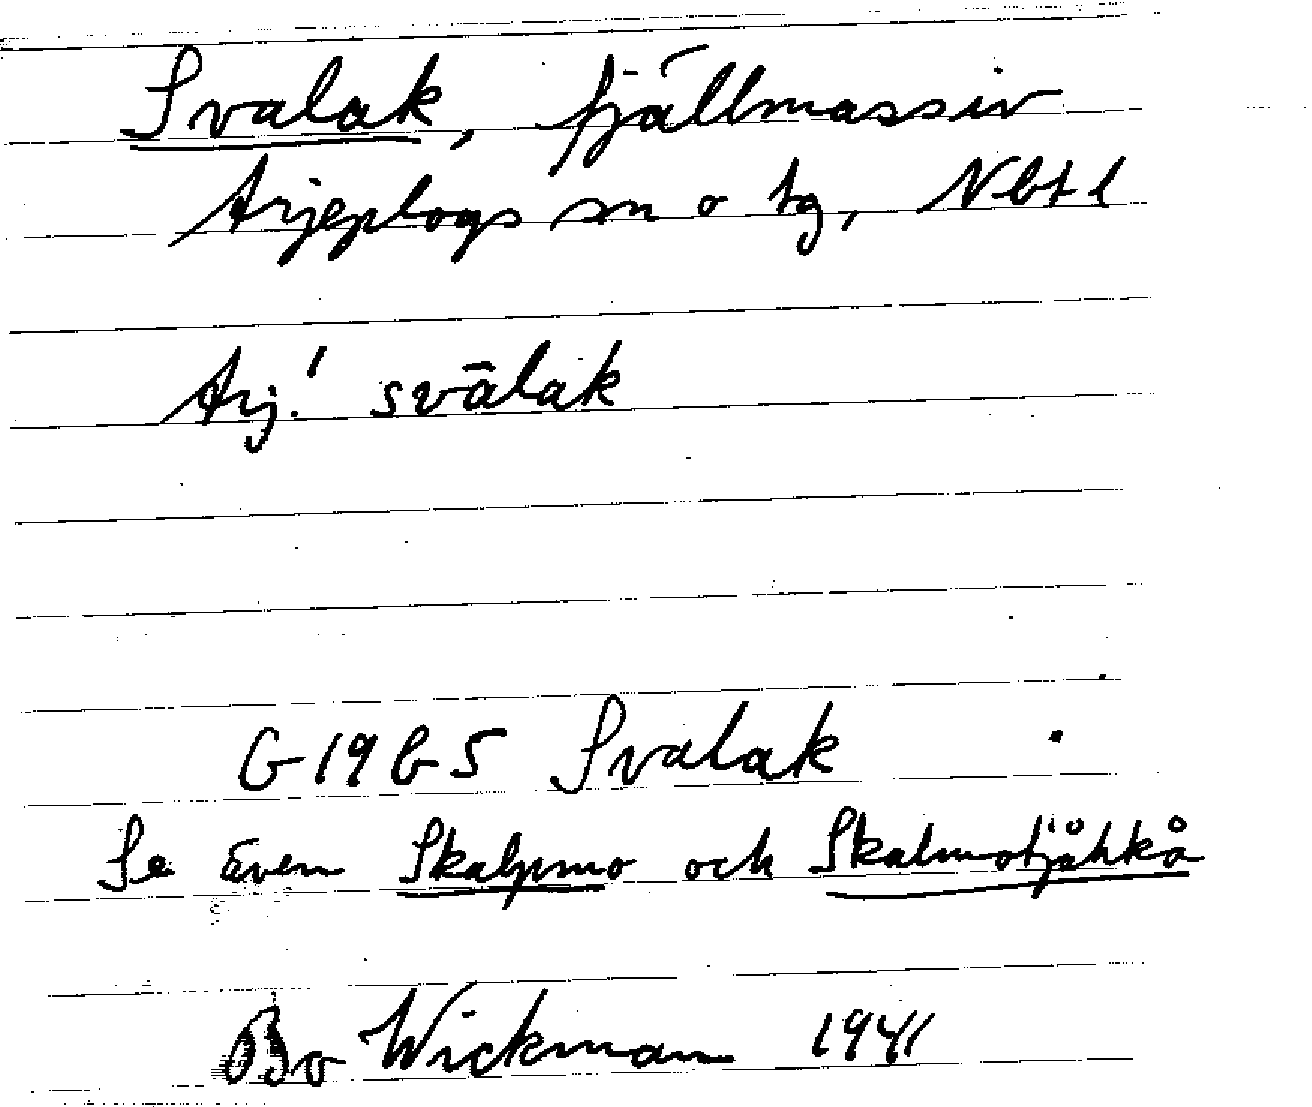 Svalak, fjällmassiv
Arjeplogs sn o tg, Nbtl
Arj! svālak
G1965 Svalak
Se även Skalpmo och Skalmotjåhkå
Bo Wickman 1941